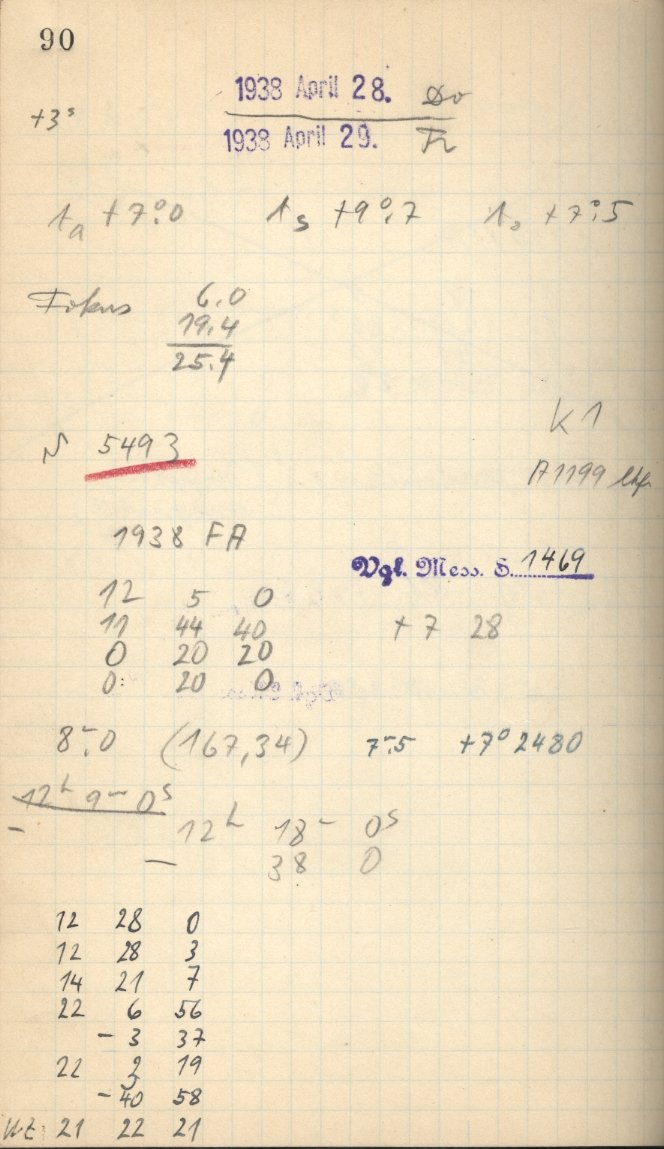 90
1938 April 28. Do
+3ˢ
1938 April 29. Fr
tₐ +7°.0 tₛ +9°.7 t₀ +7°.5
Fokus 6.0
19.4
25.4
K1
N 5493
A1199
1938 FA
Vgl. Mess. S. 1469
12 5 0
11 44 40 +7 28
0 20 20
0: 20 0
8ᵐ.0 (167,34) 7ᵐ.5 +7° 2480
12ʰ 9ᵐ 0ˢ
— 12ʰ 18ᵐ 0ˢ
— 38 0
12 28 0
12 28 3
14 21 7
22 6 56
- 3 37
22 3 19
- 40 58
Wt: 21 22 21